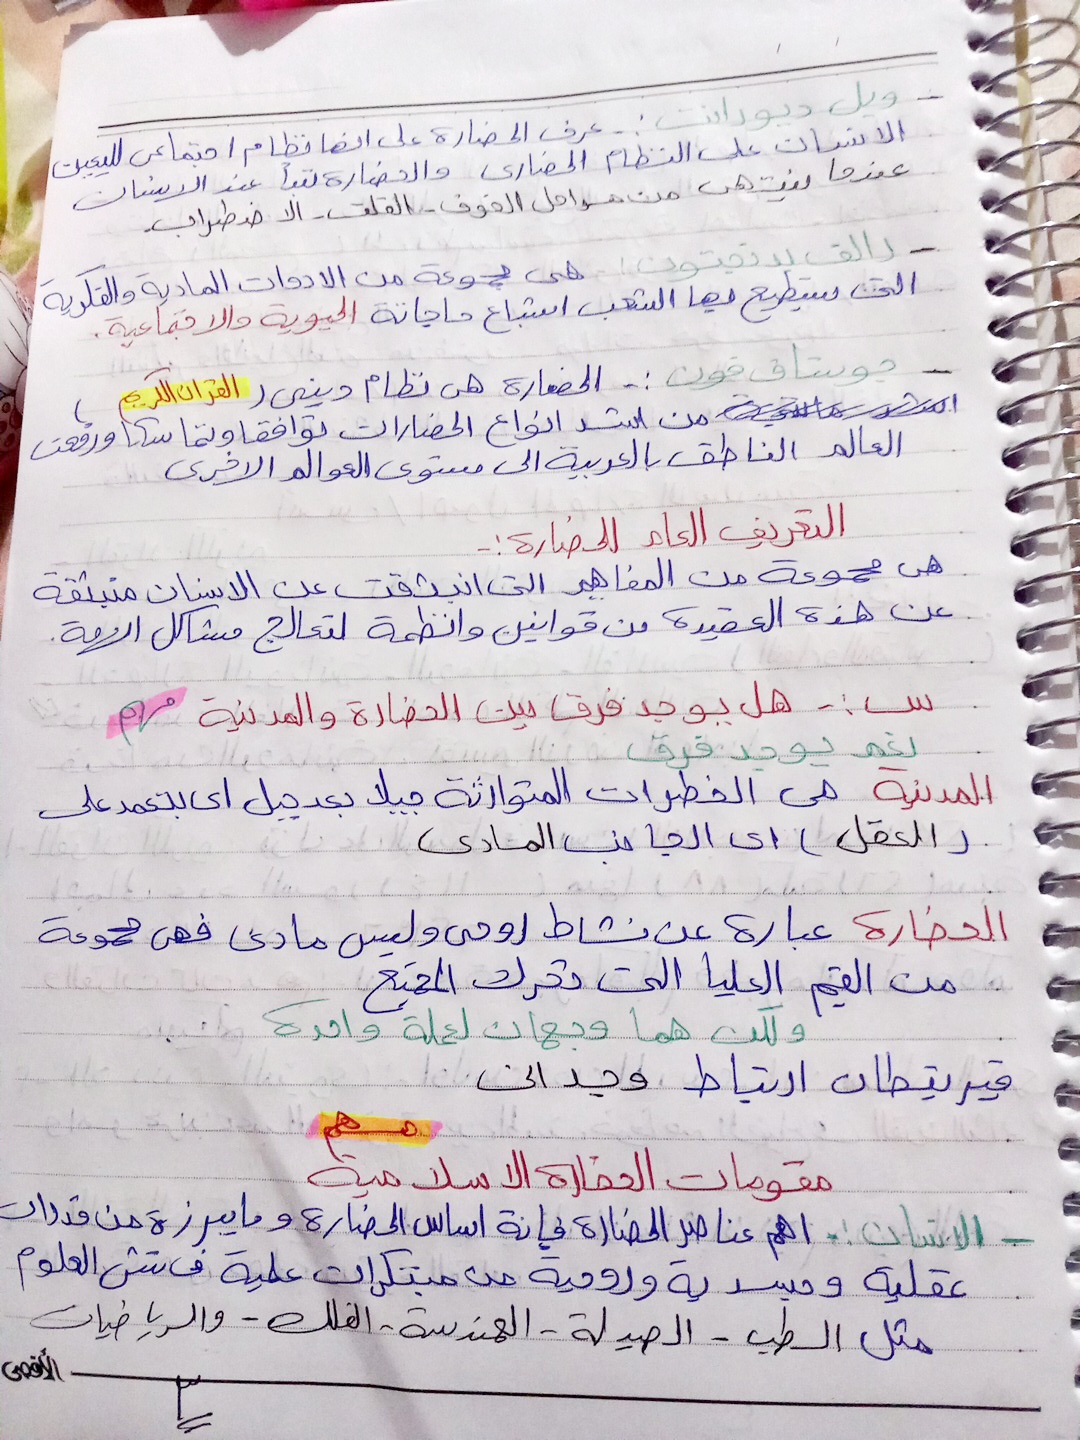 - ويل ديورانت :- عرف الحضارة على انها نظام اجتماعى لليعين
الانسان على النظام الحضارى والحضارة تبدأ عند الانسان
عندما ينتهى من مراحل الخوف - القلق - الاضطراب.
- رالف بدنجتون : هى مجموعة من الادوات المادية والفكرية
التى يستطيع بها الشعب اشباع حاجاتة الحيوية والاجتماعية.
- جوستاف فون :- الحضارة هى نظام دينى ( القران الكريم )
من اشد انواع الحضارات توافقا وتماسكا ورفعت
العالم الناطق بالعربية الى مستوى العوالم الاخرى
التعريف العام للحضارة :-
هى مجموعة من المفاهيم التى انبثقت عن الانسان منبثقة
عن هذة العقيدة من قوانين وانظمة لتعالج مشاكل الامة.
س :- هل يوجد فرق بين الحضارة والمدنية مهم
نعم يوجد فرق
المدنية هى الخطوات المتوارثة جيلا بعد جيل اى يتعمد على
( العقل ) اى الجانب المادى )
الحضارة عبارة عن نشاط روحى وليس مادى فهى مجموعة
من القيم العليا التى تحرك المجتمع
ولكن هما وجهان لعملة واحدة
فيرتبطان ارتباط وجدانى
مهم
مقومات الحضارة الاسلامية
- الانسان :- اهم عناصر الحضارة لانة اساس الحضارة وما يبرزة من قدرات
عقلية وجسدية وروحية من مبتكرات علمية فى شتى العلوم
مثل الطب - الصيدلة - الهندسة - الفلك - والرياضيات
الأقصى
٣